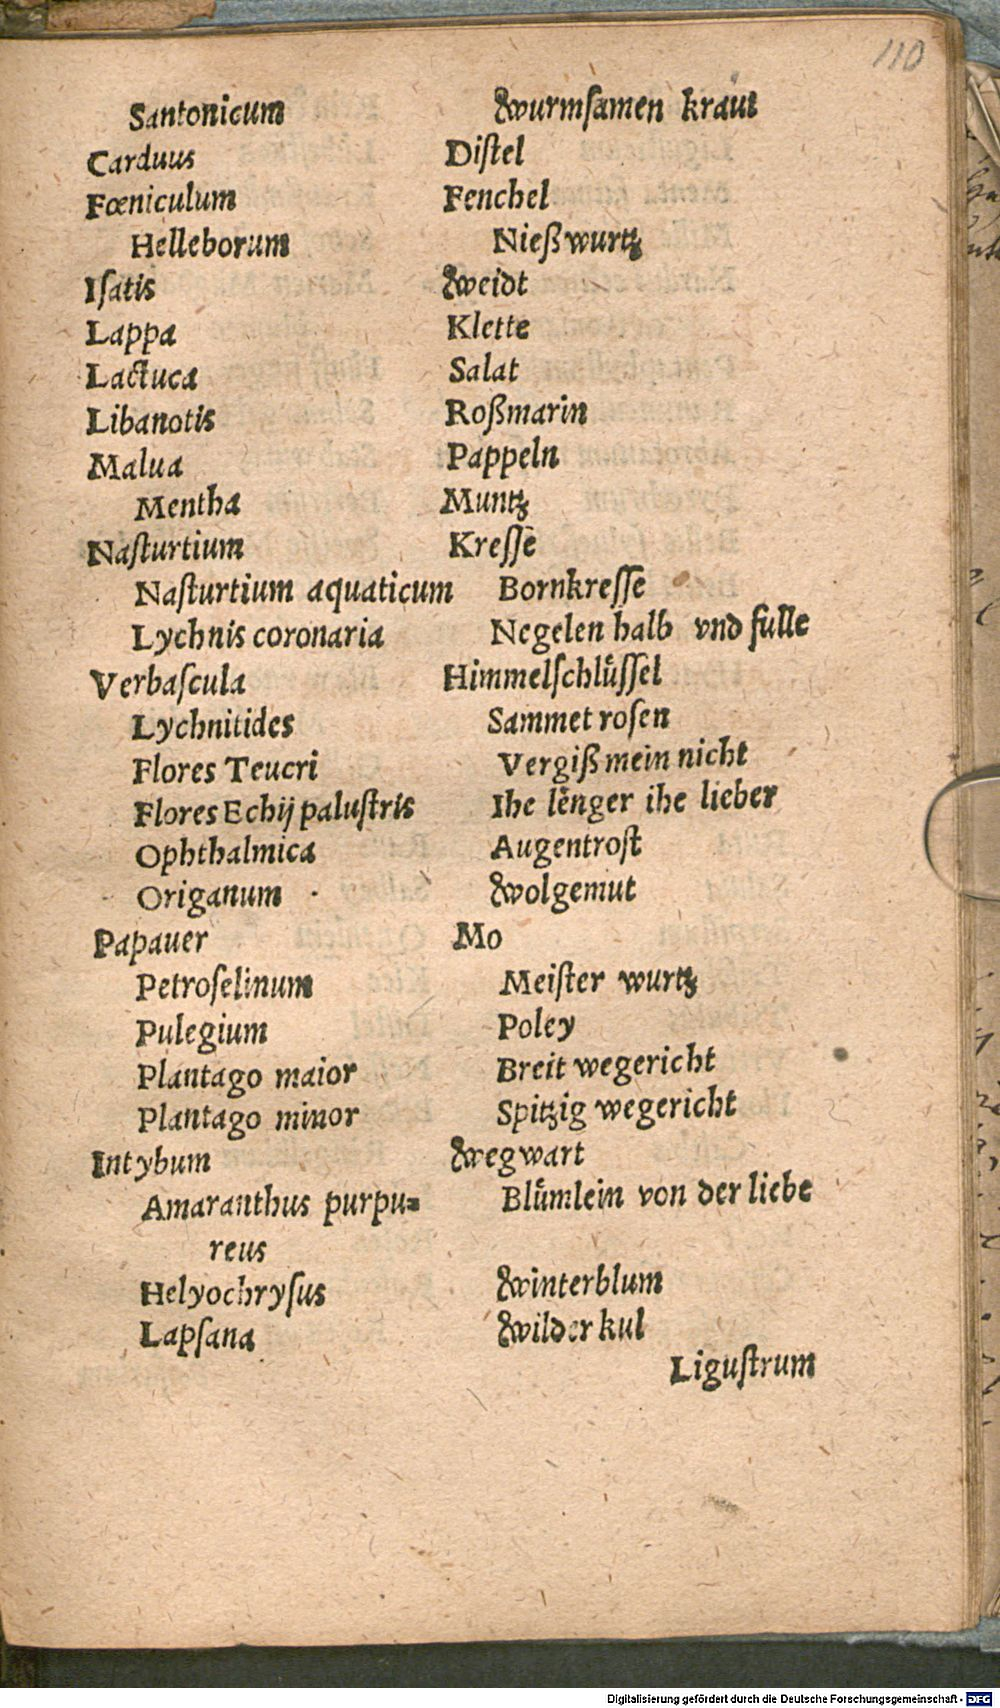 110
Santonicum Wurmſamen kraut
Carduus Diſtel
Fœniculum Fenchel
Helleborum Nieß wurtz
Iſatis Weidt
Lappa Klette
Lactuca Salat
Libanotis Roßmarin
Malua Pappeln
Mentha Muntz
Naſturtium Kreſſe
Naſturtium aquaticum Bornkreſſe
Lychnis coronaria Negelen halb vnd fulle
Verbaſcula Himmelſchlüſſel
Lychnitides Sammet roſen
Flores Teucri Vergiß mein nicht
Flores Echij paluſtris Ihe lenger ihe lieber
Ophthalmica Augentroſt
Origanum Wolgemut
Papauer Mo
Petroſelinum Meiſter wurtz
Pulegium Poley
Plantago maior Breit wegericht
Plantago minor Spitzig wegericht
Intybum Wegwart
Amaranthus purpu= Blümlein von der liebe
reus
Helyochryſus Winterblum
Lapſana Wilder kul
Liguſtrum
Digitalisierung gefördert durch die Deutsche Forschungsgemeinschaft - DFG